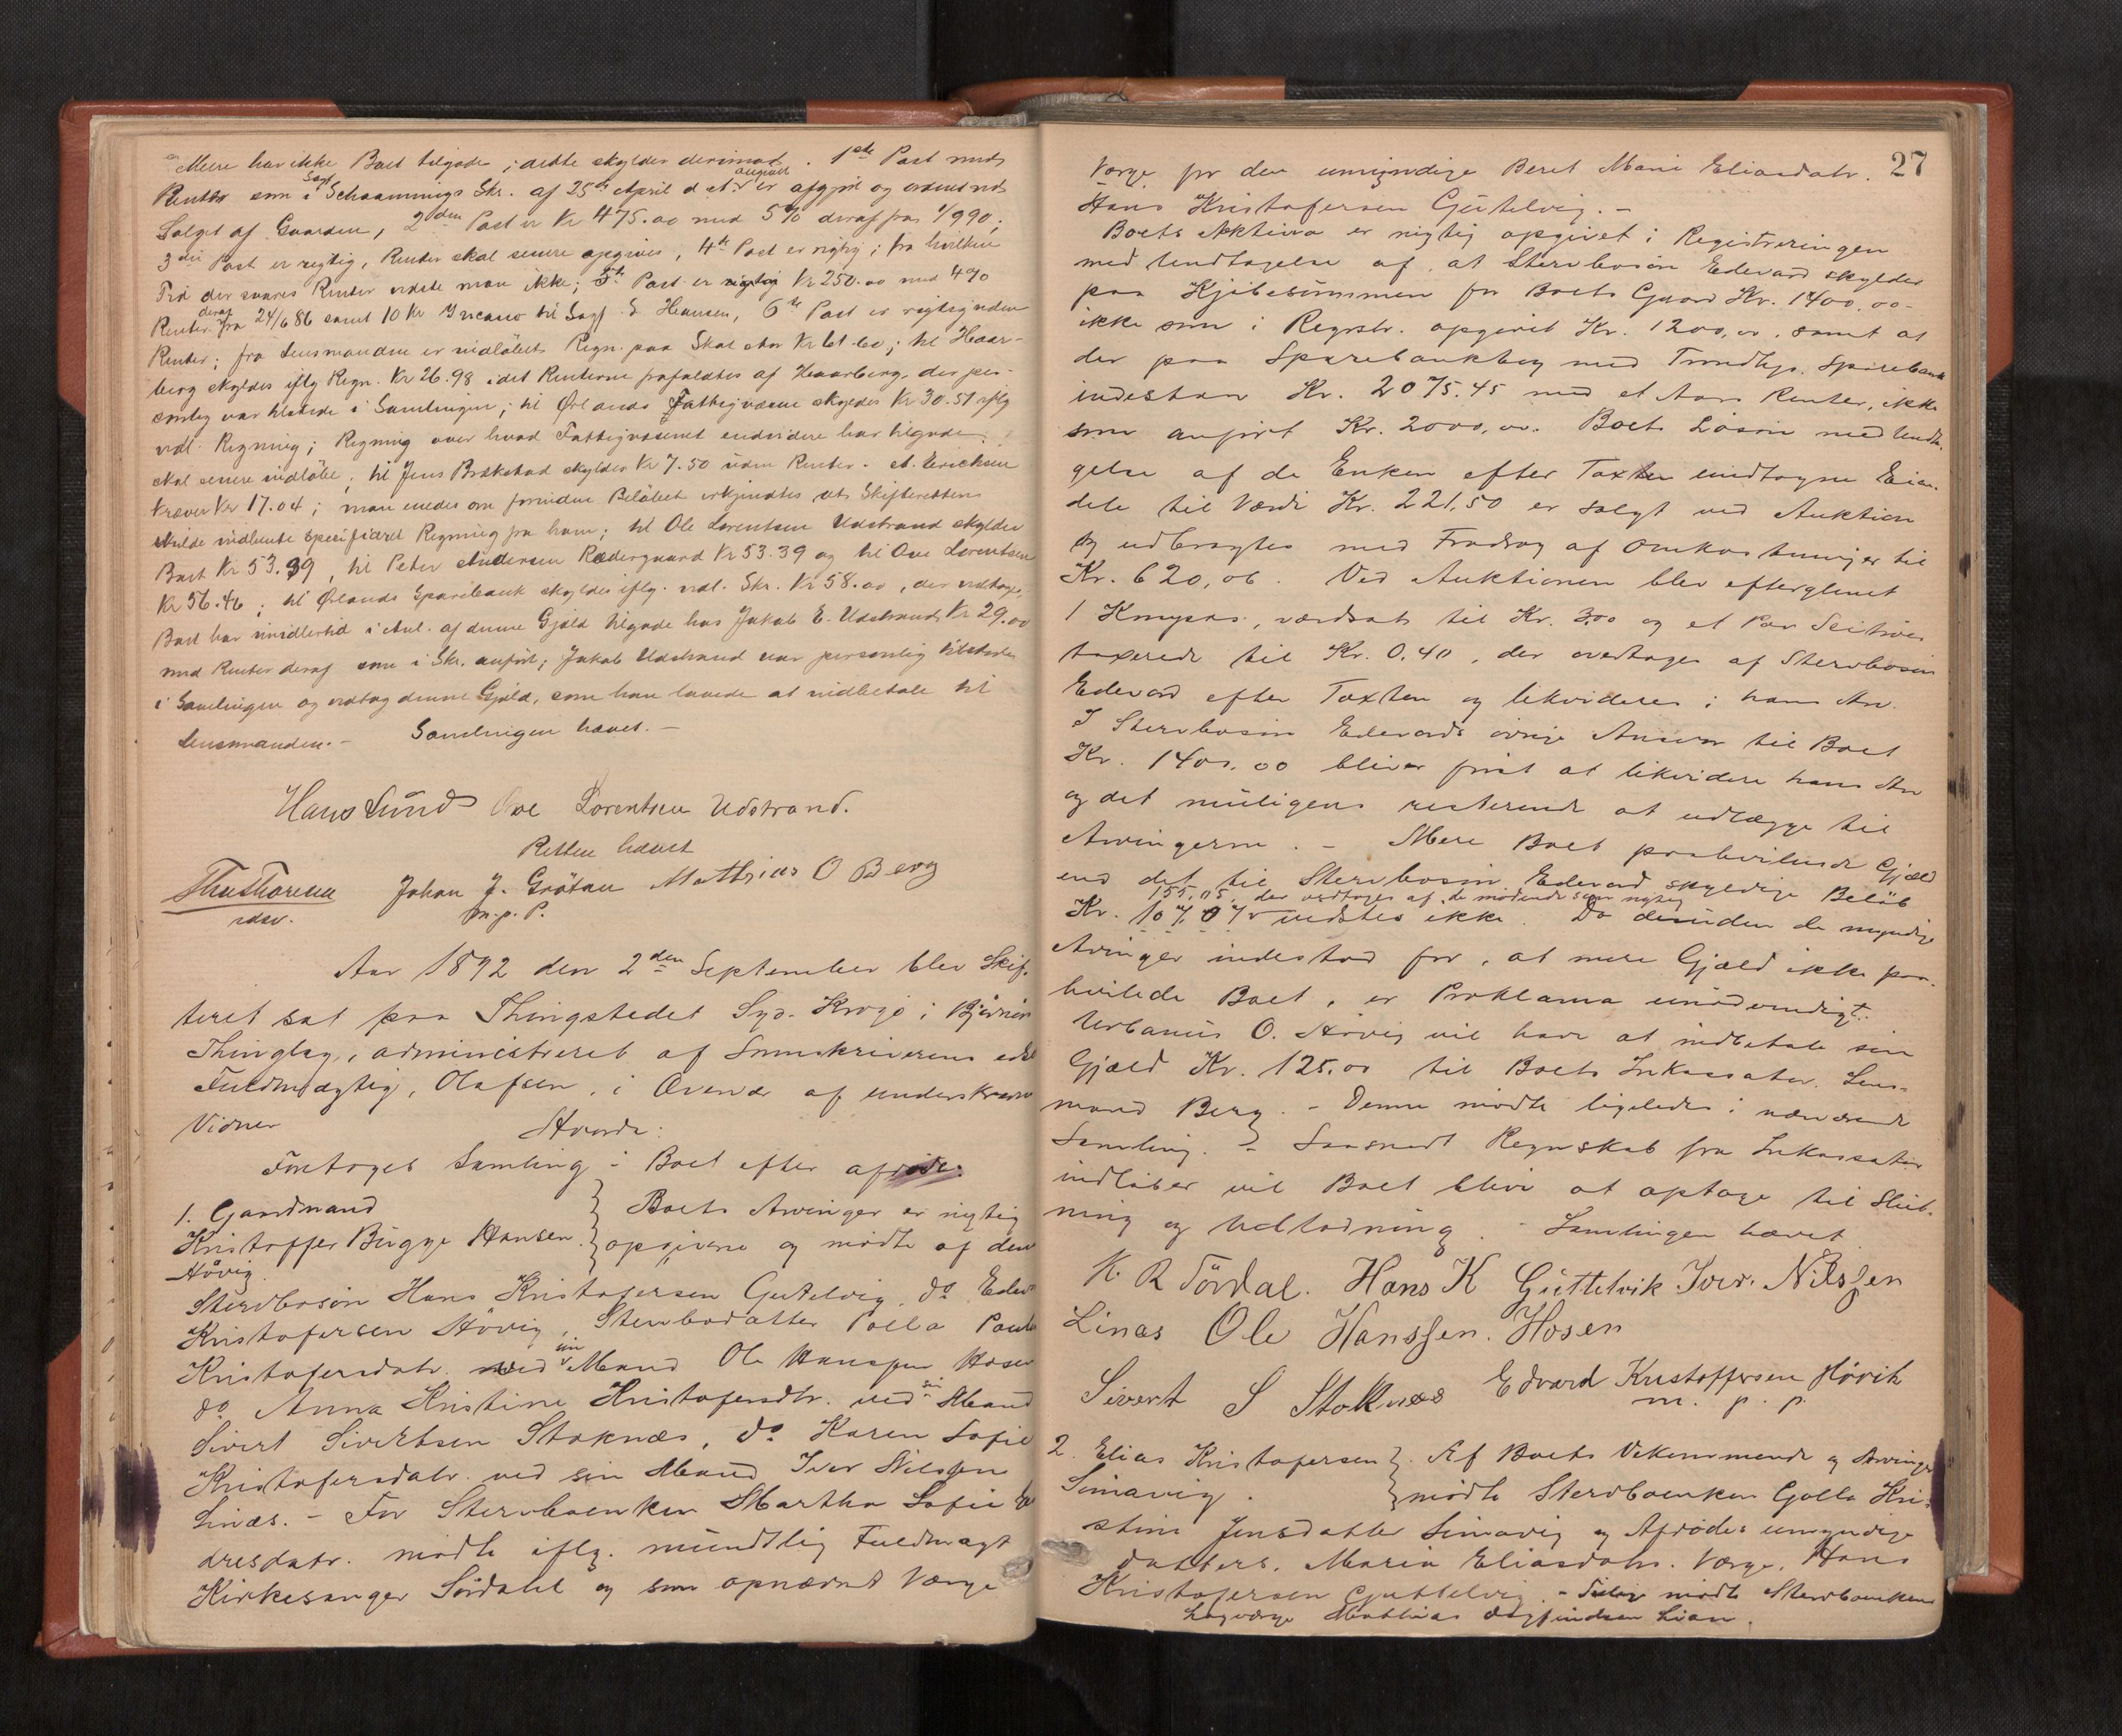 Mere har ikke Boet tilgode; dette skylder derimod. 1ste Post med
Renter som i Sagf Schaannings Skr. af 25de April d. A. angivet er afgjort og ordnet ved
Salget af Gaarden, 2den Post er Kr 475.00 med 5% deraf fra 1/9 90;
3die Post er rigtig, Renter skal senere opgives, 4de Post er rigtig; fra hvilken
Tid der svares Renter vidste man ikke; 5te Post er rigtig Kr 250.00 med 4%
Renter deraf fra 24/6 86 samt 10 Kr Incasso til Sagf. S. Hansen, 6te Post er rigtig uden
Renter; fra Lensmanden er indløbet Regn. paa Skat stor Kr 61.60; til Haar-
berg skyldes iflg Regn. Kr 26.98 idet Renterne frafaldtes af Haarberg, der per-
sonlig var tilstede i Samlingen; til Ørlands Fattigvæsen skyldes Kr 30.51 iflg
vedl. Regning; Regning over hvad Fattigvæsenet endvidere har tilgode
skal senere indløbe; til Jens Brækstad skyldes Kr 7.50 uden Renter. A. Erichsen
kræver Kr 17.04; man enedes om forinden Beløbet erkjendtes at Skifteretten
skulde indhente specificeret Regning fra ham; til Ole Lorentsen Udstrand skylder
Boet Kr 53.39, til Peter Andersen Rødergaard Kr 53.39 og til Ove Lorentsen
Kr 56.46; til Ørlands Sparebank skyldes iflg. vedl. Skr. Kr 58.00, der vedtoges,
Boet har imidlertid i Anl. af denne Gjæld tilgode hos Jakob E. Udstrand Kr 29.00
med Renter deraf som i Skr. anført; Jakob Udstrand var personlig tilstede
i Samlingen og vedtog denne Gjæld, som han lovede at indbetale til
Lensmanden. - Samlingen hævet. -
Hans Lund Ove Lorentsen Udstrand.
Retten hævet
Johan J. Grøtan Mathias O Berg
m. p. P.
Aar 1892 den 2den September blev Skif-
teret sat paa Thingstedet Syd. Krogø i Bjørnør
Thinglag, administreret af Sorenskriverens edsv
Fuldmægtig, Olafsen, i Overvær af underskrevne
Vidner Hvorda:
Foretoges Samling i Boet efter afdøde:
1. Gaardmand } Boets Arvinger er rigtig
Kristoffer Bugge Hansen } opgivne og mødte af dem
Høvig
Stervbosøn Hans Kristofersen Gutelvig, do Edev
Kristofersen Høvig, Stervbodatter Polla Paul
Kristofersdatr. ved sin Mand Ole Hanssen Hosen
do Anna Kristine Kristofersdtr. ved sin Mand
Sivert Sivertsen Stoknæs, do Karen Sofie
Kristofersdatr. ved sin Mand Iver Nilssen
Linæs. - For Stervboenken Martha Sofie
dresdatr. mødte iflg. mundtlig Fuldmagt
Kirkesanger Sørdahl og som opnævnt Værge
27
Værge for den umyndige Beret Marie Eliasdatr.
Hans Kristofersen Gutelvig. -
Boets Aktiva er rigtig opgivet i Registreringen
med Undtagelse af, at Stervbosøn Edevard skylder
paa Kjøbesummen for Boets Gaard Kr. 1400.00 -
ikke som i Regrstr. opgivet Kr. 1200,00, samt at
der paa Sparebankbog med Trondhjs. Sparebank
indestaar Kr. 2075.45 med et Aars Renter, ikke
som anført Kr. 2000,00. Boets Løsøre med Undta-
gelse af de Enken efter Taxten undtagne Eien-
dele til Værdi Kr. 221,50 er solgt ved Auktion
og udbragtes med Fradrag af Omkostninger til
Kr. 620,06. Ved Auktionen blev efterglemt
1 , værdsat til Kr. 3.00 og et Par
taxerede til Kr. 0.40, der overtages af Stervbosøn
Edevard efter Taxten og likvideres i hans Arv.
I Stervbosøn Edevards øvrige Ansvar til Boet
Kr. 1400.00 bliver først at likvidere hans Arv
og det muligens resterende at udlægge til
Arvingerne. - Mere Boet paahvilende Gjæld
end det til Stervbosøn Edevard skyldige Beløb
155,05, der vedtoges af de mødende som rigtig
Kr. 107,07 vidstes ikke. Da desuden de myndige
Arvinger indestod for, at mere Gjæld ikke paa-
hvilede Boet, er Proklama unødvendigt.
Urbanus O. Høvig vil have at indbetale sin
Gjæld Kr. 125.00 til Boets Inkassator. Lens-
mand Berg. - Denne mødte ligeledes i nærværende
Samling. - Saasnart Regnskab fra Inkassator
indløber vil Boet blive at optage til Slut-
ning og Udlodning. - Samlingen hævet
K. R Sørdal. Hans K Guttelvik Iver. Nilssen
Linæs Ole Hanssen. Hosen
Sivert S Stoknæs Edvard Kristoffersen Høvik
m. p. p.
2. Elias Kristofersen } Af Boets Vedkommende og Arvinger
Simavig. } mødte Stervboenken Golla Kri-
stine Jensdatter Simavig og Afdødes umyndige
datters, Maria Eliasdatrs. Værge, Hans
Kristofersen Guttelvig. - mødte Stervboenkens
Lagværge Mathias Dagfindsen Lian.